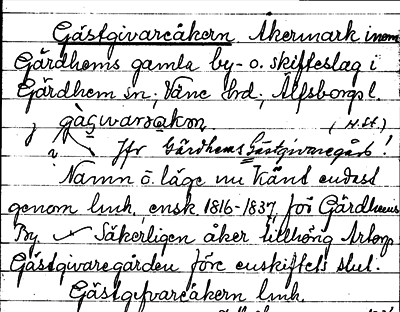 Gästgivareåkern Åkermark inom
Gärdhems gamla by- o. skifteslag i
Gärdhem sn; Väne hrd; Älfsborgs l.
(H.St.)
Jfr Gärdhems Gästgivaregård!
Namn o. läge nu känt endast
genom lmk, ensk 1816-1837, för Gärdhems
By. Säkerligen åker tillhörig
Gästgivaregården före enskiftets slut.
Gästgifvareåkern lmk.